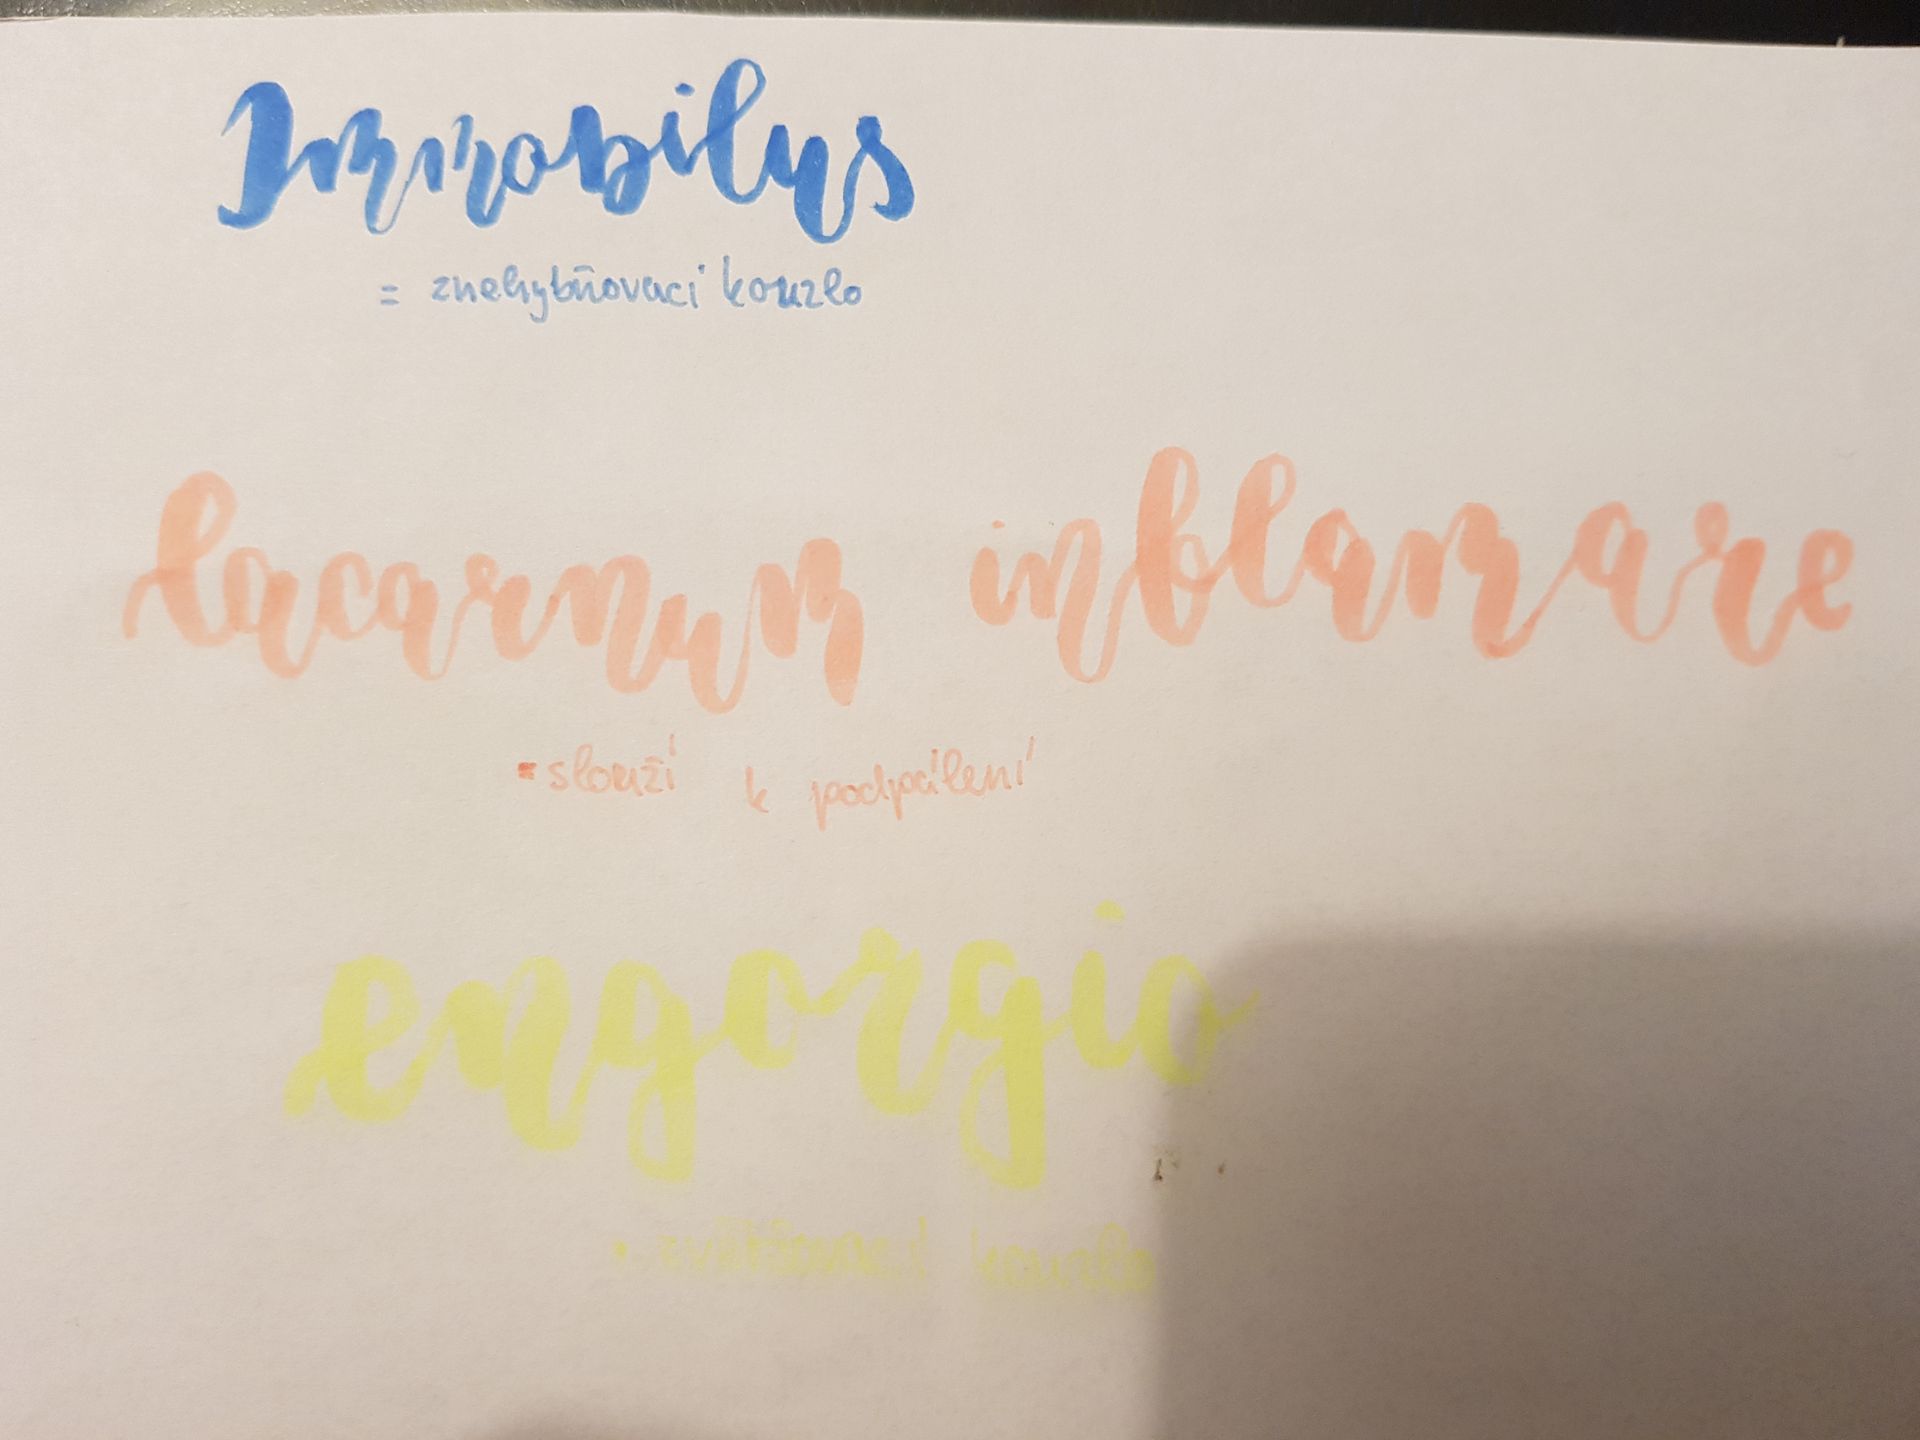 Immobilus
= znehybňovací kouzlo
lacarnum inblamare
• slouží k podpálení
engorgio
• zvětšovací kouzlo